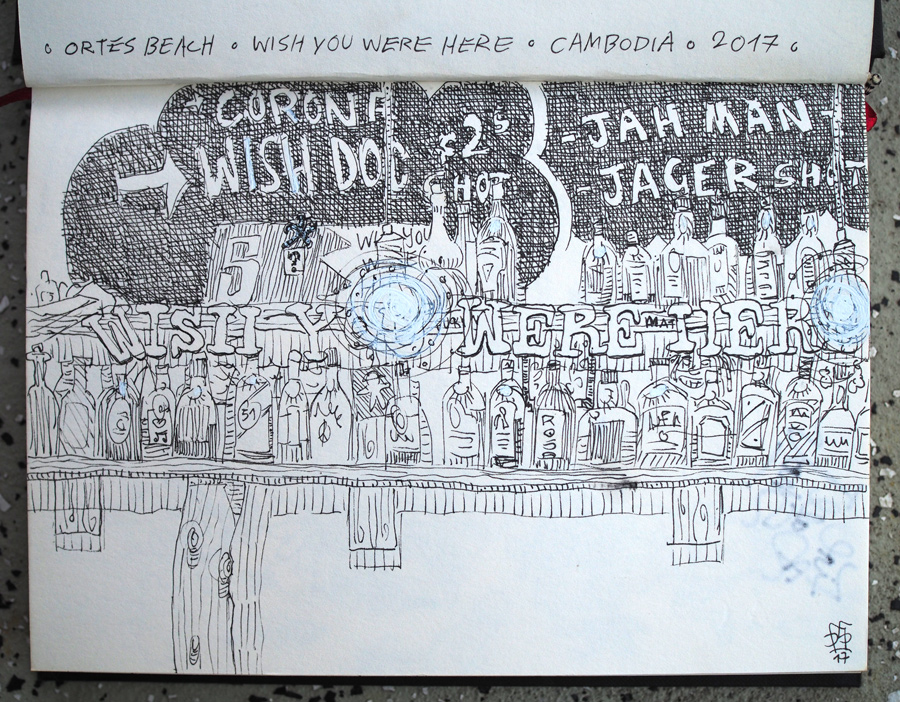 ◦ ORTES BEACH ◦ WISH YOU WERE HERE ◦ CAMBODIA ◦ 2017 ◦
CORONA
WISH DOC $2 S
HOT
- JAH MAN -
- JAGER SHOT
S ?
WISH YOU
WISH Y WERE HER
51
17